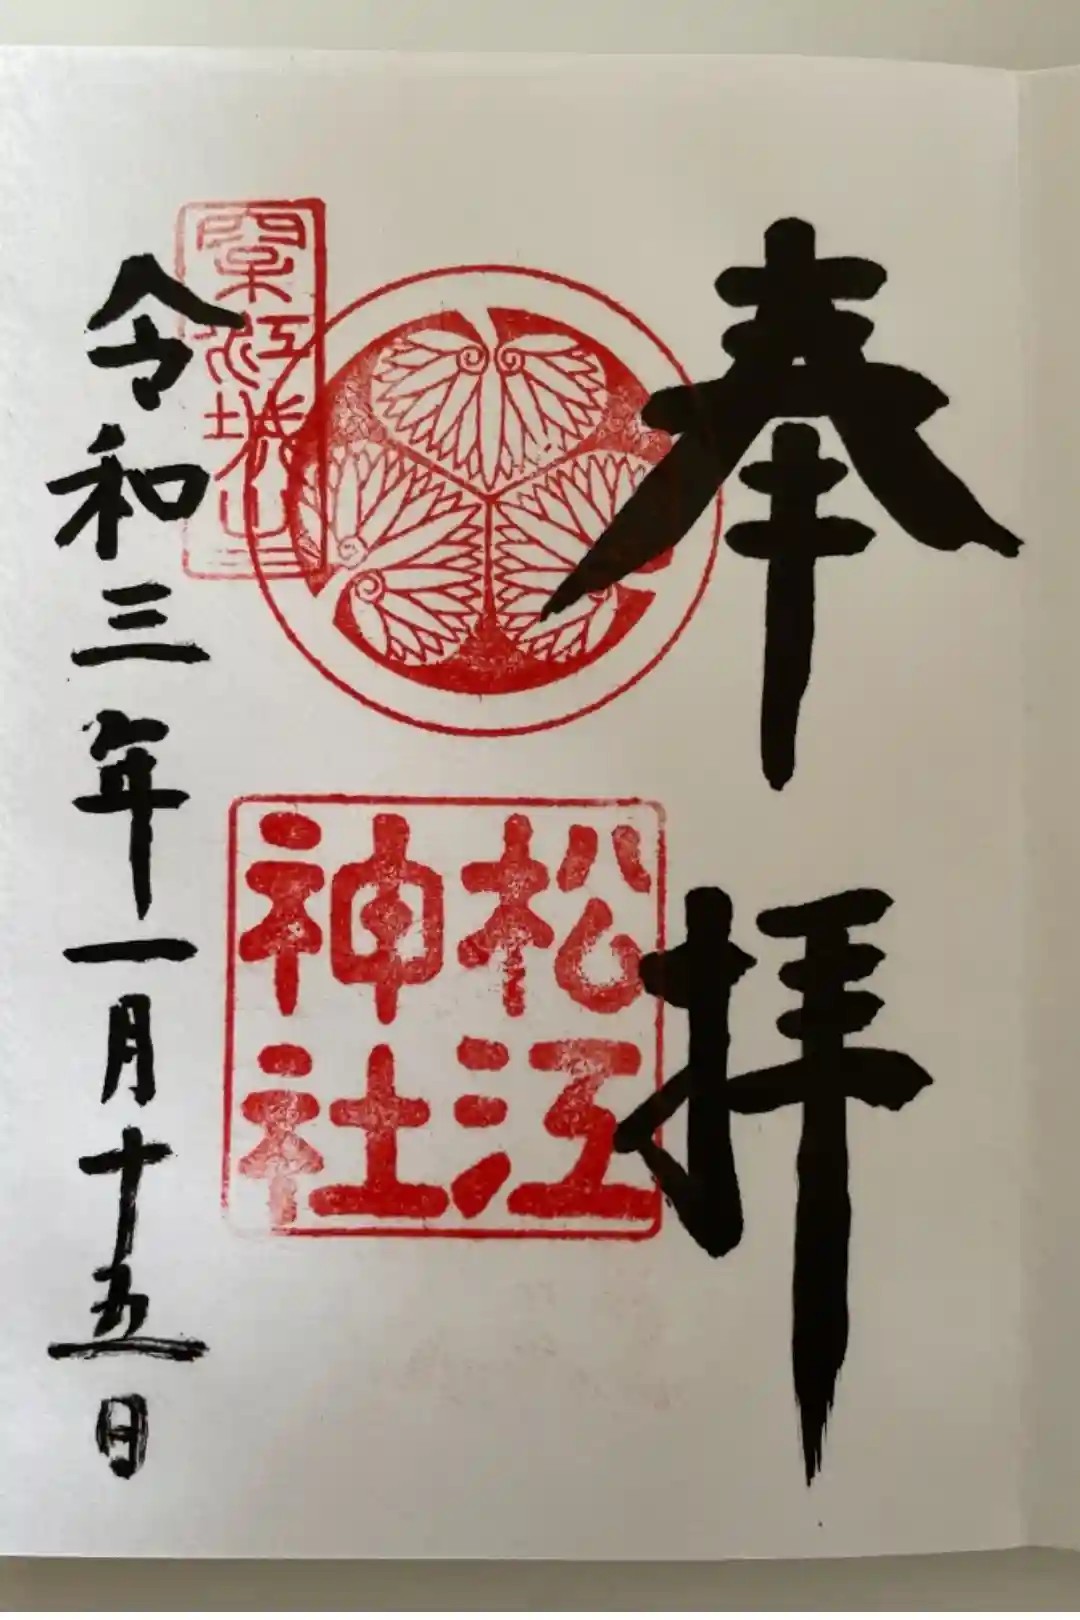 奉拝
松江
神社
松江城山
令和三年一月十五日